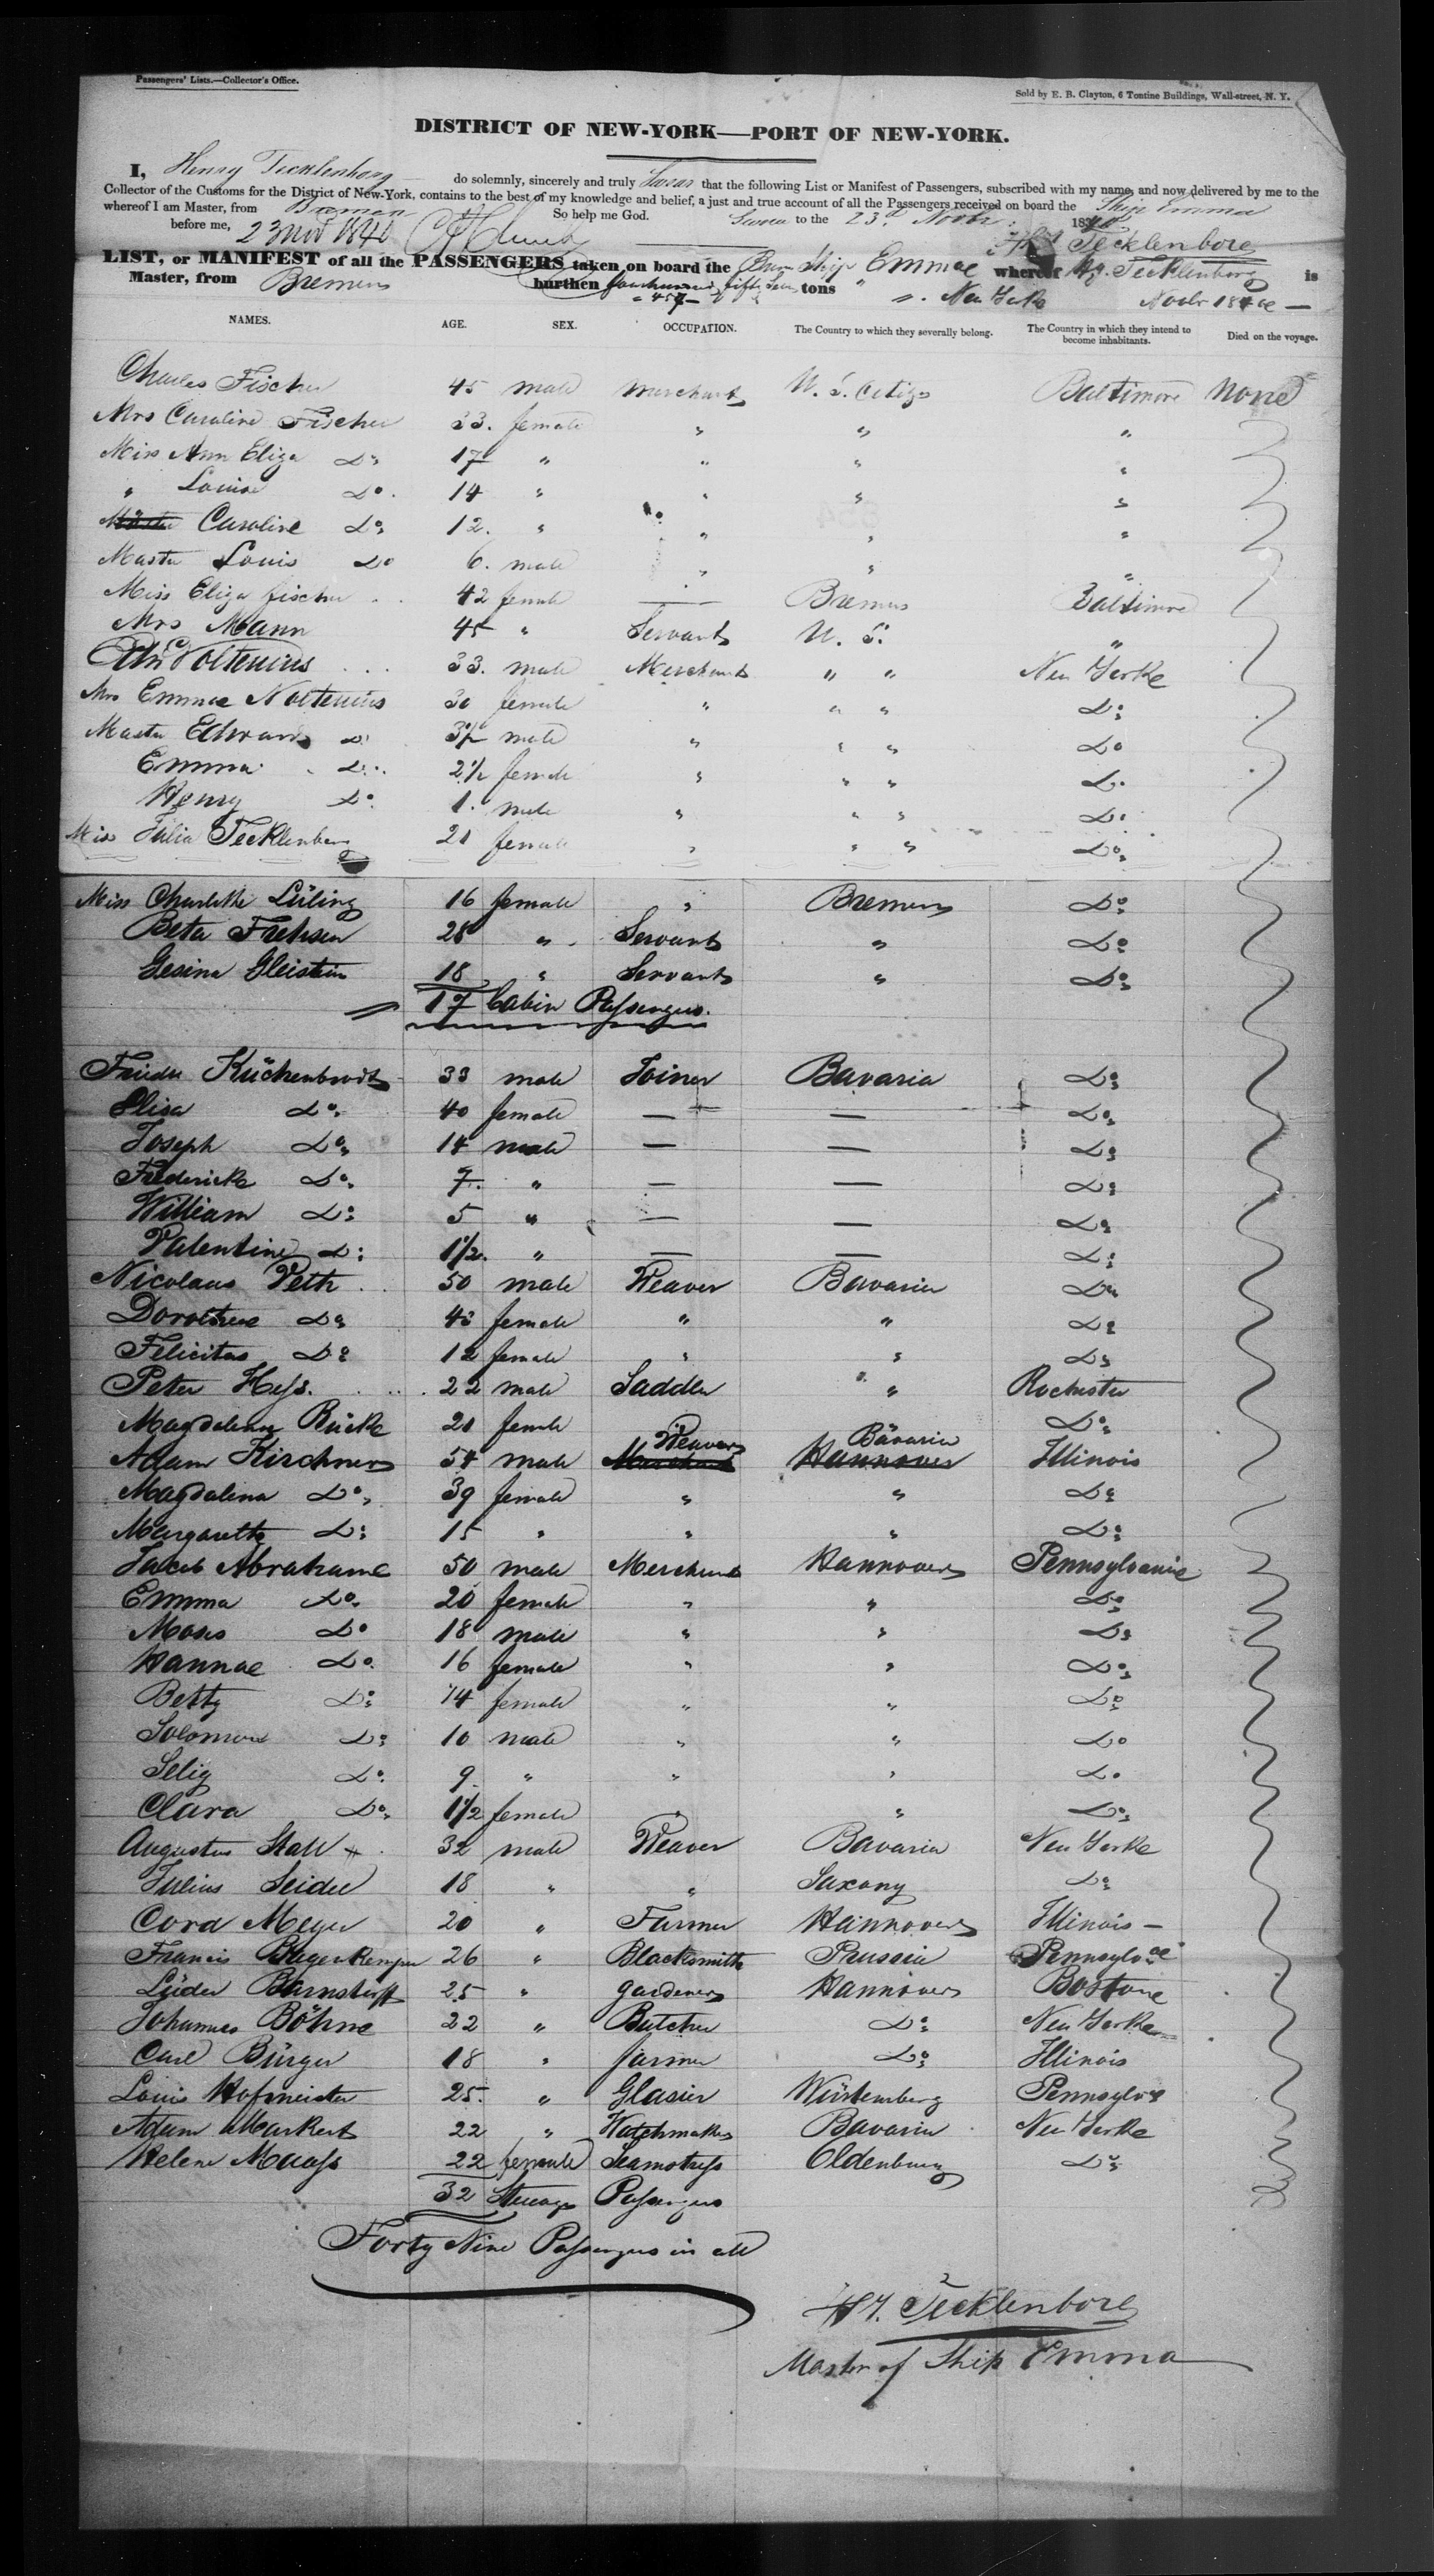 Passengers' Lists.—Collector's Office.
Sold by E. B. Clayton, 6 Tontine Buildings, Wall-street, N. Y.
DISTRICT OF NEW-YORK—PORT OF NEW-YORK.
I, Henry Tecklenborg do solemnly, sincerely and truly Swear that the following List or Manifest of Passengers, subscribed with my name, and now delivered by me to the
Collector of the Customs for the District of New-York, contains to the best of my knowledge and belief, a just and true account of all the Passengers received on board the Ship Emma
whereof I am Master, from Bremen So help me God.
Sworn to the 23d Novbr 1840
before me, 23 Nov 1840
Hy Tecklenborg
LIST, or MANIFEST of all the PASSENGERS taken on board the Brem Ship Emma whereof Hy. Tecklenborg is
Master, from Bremen burthen fourhundred fifty seven tons New Yorke Novbr 1840
457
NAMES. AGE. SEX. OCCUPATION. The Country to which they severally belong. The Country in which they intend to become inhabitants. Died on the voyage.
Charles Fischer 45 male merchant U. S. Citizn Baltimore None
Mrs Caroline Fischer 33. female " " "
Miss Ann Eliza Do 17 " " " "
" Louise Do. 14 " " " "
Caroline Do 12. " " " "
Master Louis Do 6. male " " "
Miss Eliza fischer 42 female — Bremen Baltimore
Mrs Mann 45 " Servant U. S. "
Noltenius 33. male Merchant " " New Yorke
Mrs Emma Noltenius 30 female " " " Do
Master Edward Do 3½ male " " " Do
Emma Do 2½ female " " " Do
Henry Do 1. male " " " Do
Miss Julia Tecklenborg 21 female " " " Do
Miss Charlotte Lüling 16 female " Bremen Do
Beta Frehsen 28 " Servant " Do
Gesina Gleistein 18 " Servant " Do
17 Cabin Passengers.
Friedr Küchenbrodt 33 male Joiner Bavaria Do
Elisa Do 40 female — — Do
Joseph Do 14 male — — Do
Frederick Do 7. " — — Do
William Do 5 " — — Do
Valentine Do 1½. " — — Do
Nicolaus Veth 50 male Weaver Bavaria Do
Dorothea Do 43 female " " Do
Felicitas Do 12 female " " Do
Peter Hess. 22 male Saddler " Rochester
Magdalena Bücke 20 female Do
Adam Kirchner 54 male Weaver Bavaria Illinois
Magdalena Do 39 female " " Do
Margaretta Do 15 " " " Do
Jacob Abrahame 50 male Merchant Hannover Pennsylvania
Emma Do 20 female " " Do
Moses Do 18 male " " Do
Hannae Do 16 female " " Do
Betty Do 14 female " " Do
Solomon Do 10 male " " Do
Selig Do 9. " " " Do
Clara Do 1½ female " " Do
Augustus Stall 32 male Weaver Bavaria New Yorke
Julius Seidel 18 " " Saxony Do
Cord Meyer 20 " Farmer Hannover Illinois
Francis 26 " Blacksmith Prussia Pennsylva
Lüder Barnstorff 25 " gardener Hannover Bostone
Johannes Böhne 22 " Butcher Do New Yorke
Carl Bürger 18 " farmer Do Illinois
Louis Hofmeister 25. " Glasier Würtemberg Pennsylva
Adam Markert 22 " Watchmaker Bavaria New Yorke
Helene Maass 22 female Seamstress Oldenburg Do
32 Steerage Passengers
Forty Nine Passengers in all
Hy. Tecklenborg
Master of Ship Emma